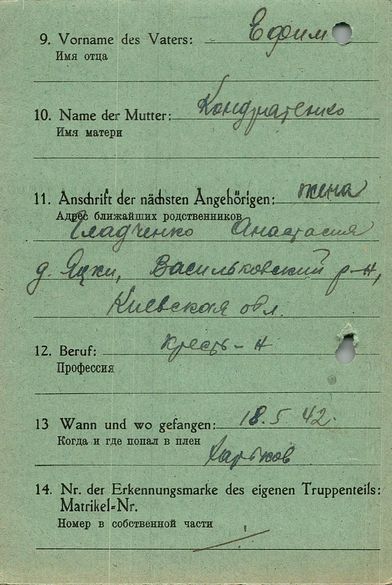 9. Vorname des Vaters: Ефим
Имя отца
10. Name der Mutter: Кондратенко
Имя матери
11. Anschrift der nächsten Angehörigen: жена
Адрес ближайших родственников
Гладченко Анастасия
д. Яцки, Васильковский р-н,
Киевская обл.
12. Beruf: кресть-н
Профессия
13 Wann und wo gefangen: 18.5.42.
Когда и где попал в плен
Харьков
14. Nr. der Erkennungsmarke des eigenen Truppenteils:
Matrikel-Nr.
Номер в собственной части